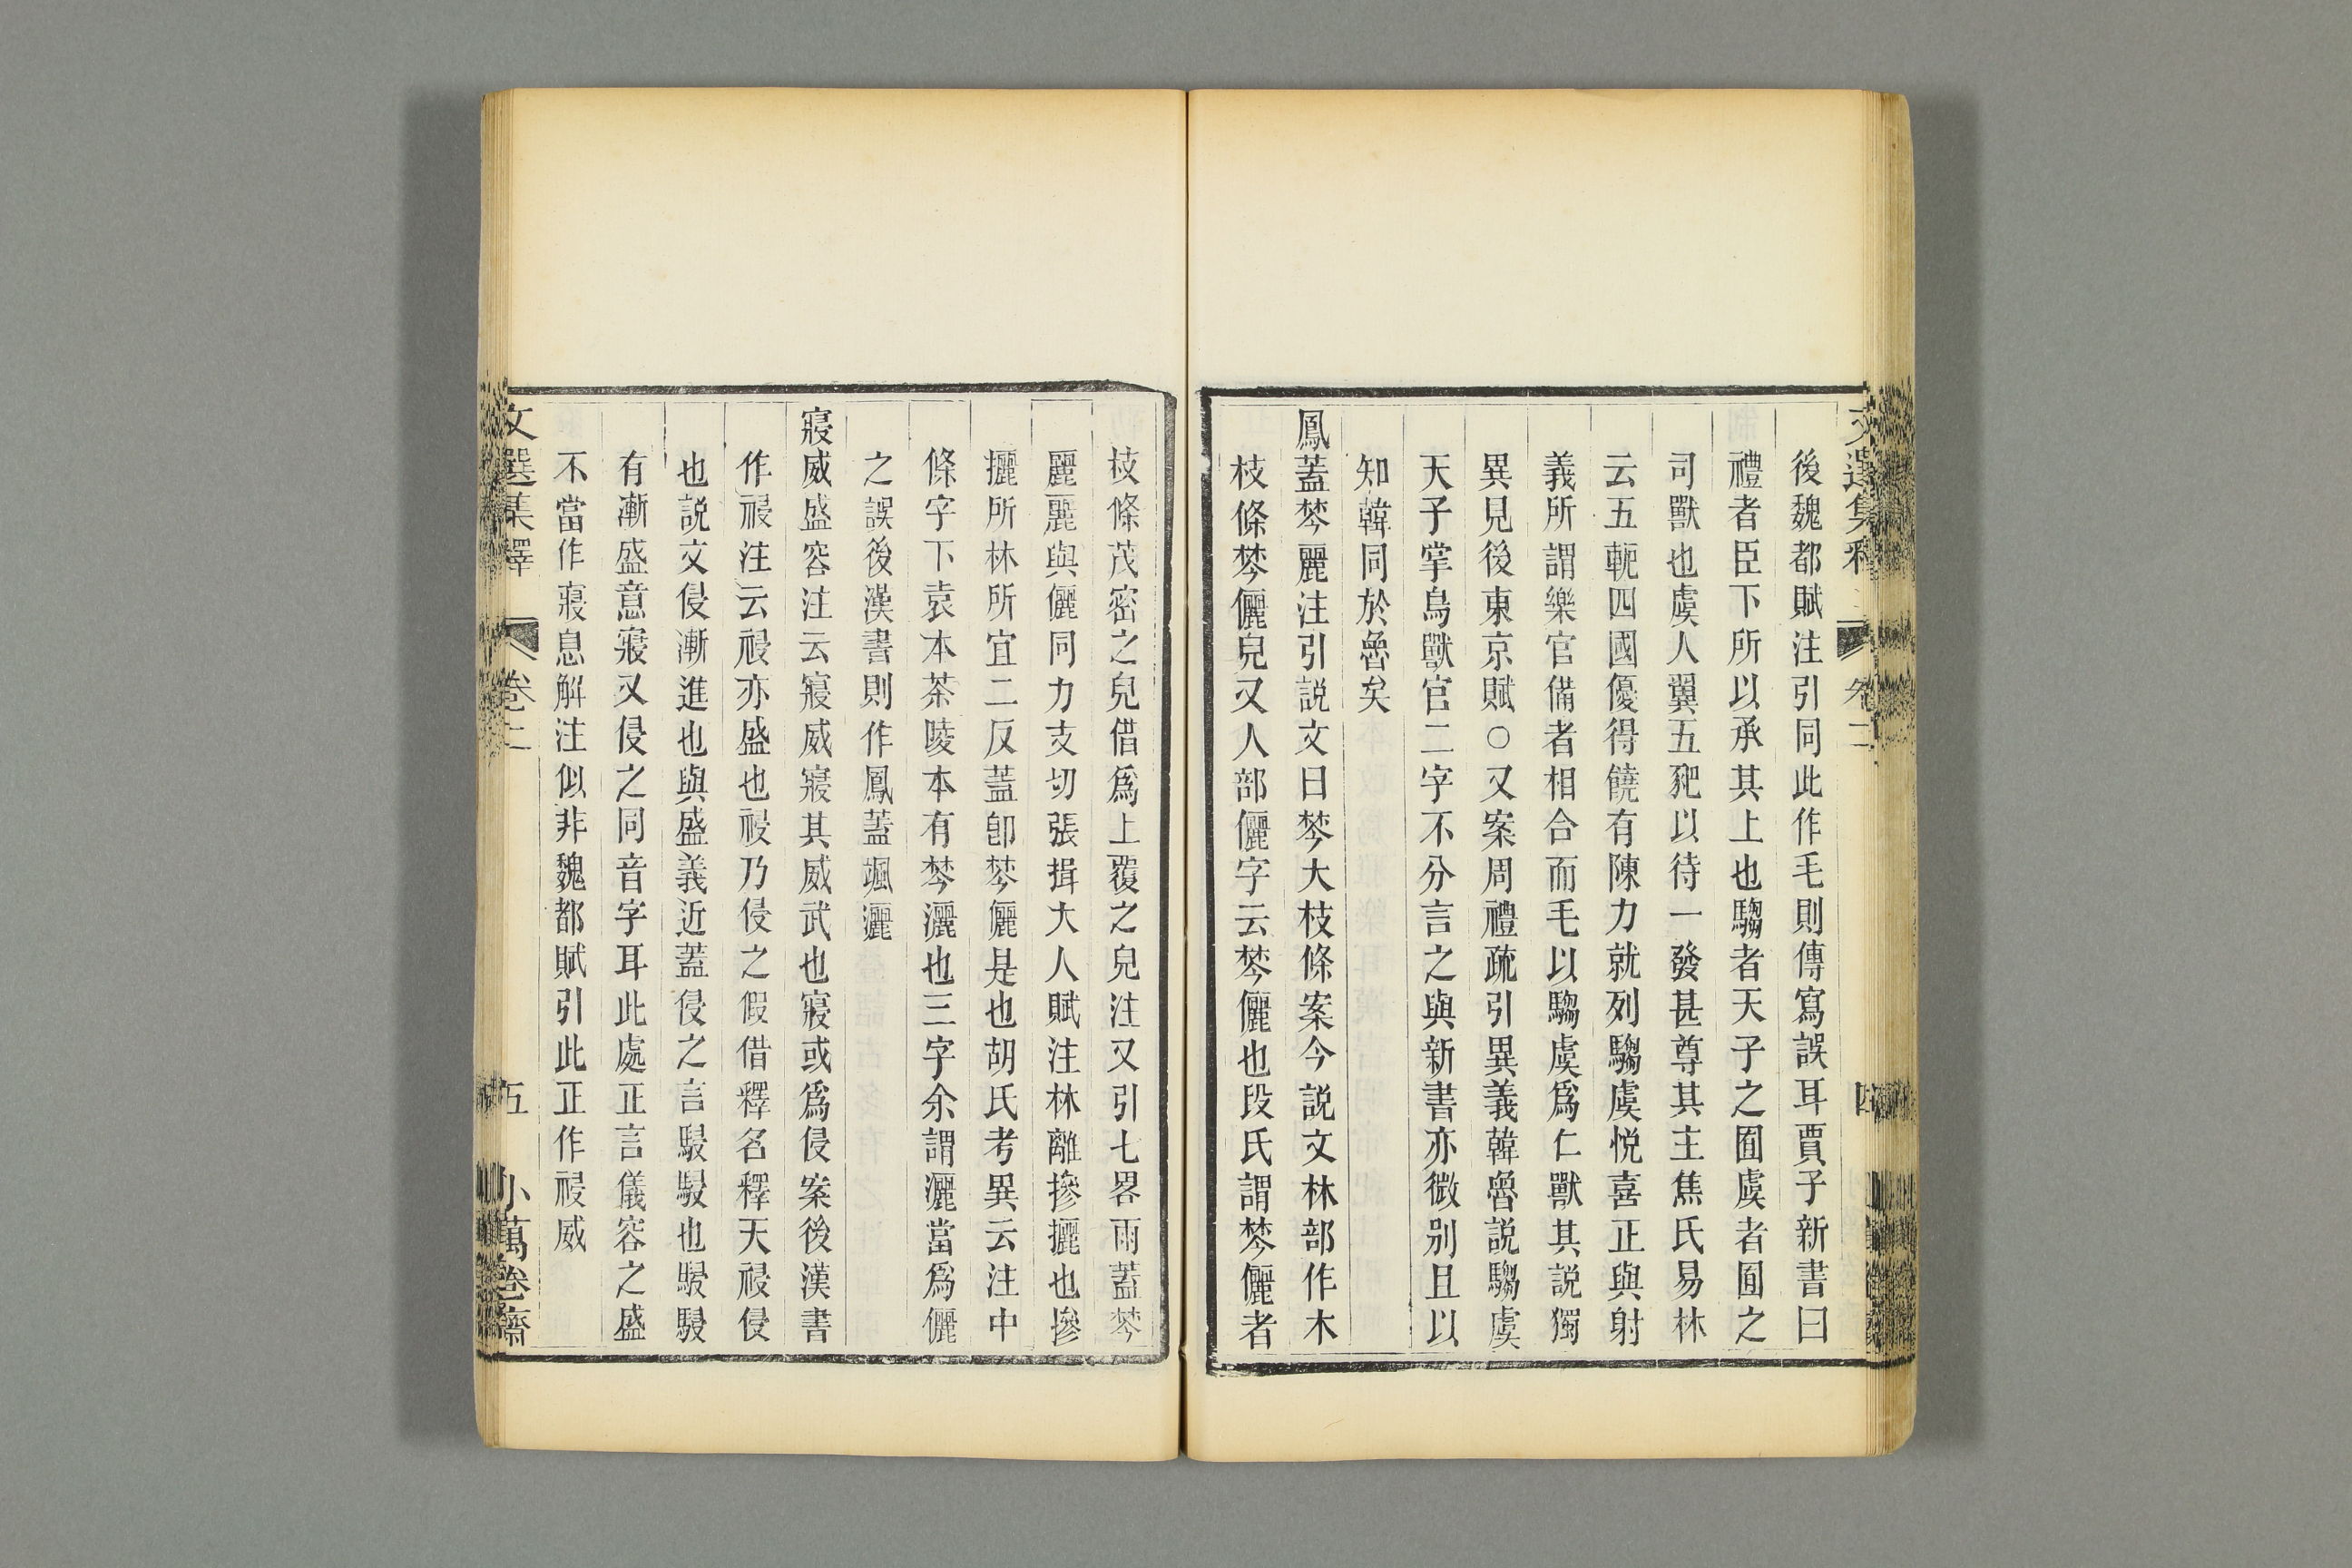 文選集釋 卷二 四
後魏都賦注引同此作毛則傳寫誤耳賈子新書曰
禮者臣下所以承其上也騶者天子之囿虞者囿之
司獸也虞人翼五豝以待一發甚尊其主焦氏易林
云五軛四國優得饒有陳力就列騶虞悅喜正與射
義所謂樂官備者相合而毛以騶虞爲仁獸其說獨
異見後東京賦○又案周禮疏引異義韓魯說騶虞
天子掌鳥獸官二字不分言之與新書亦微別且以
知韓同於魯矣
鳳蓋棽麗注引說文曰棽大枝條案今說文林部作木
枝條棽儷皃又人部儷字云棽儷也段氏謂棽儷者
枝條茂密之皃借爲上覆之皃注又引七畧雨蓋棽
麗麗與儷同力支切張揖大人賦注林離摻攦也摻
攦所林所宜二反蓋卽棽儷是也胡氏考異云注中
條字下袁本茶陵本有棽灑也三字余謂灑當爲儷
之誤後漢書則作鳳蓋颯灑
寢威盛容注云寢威寢其威武也寢或爲侵案後漢書
作祲注云祲亦盛也祲乃侵之假借釋名釋天祲侵
也說文侵漸進也與盛義近蓋侵之言駸駸也駸駸
有漸盛意寢又侵之同音字耳此處正言儀容之盛
不當作寢息解注似非魏都賦引此正作祲威
文選集釋 卷二 五 小萬卷齋